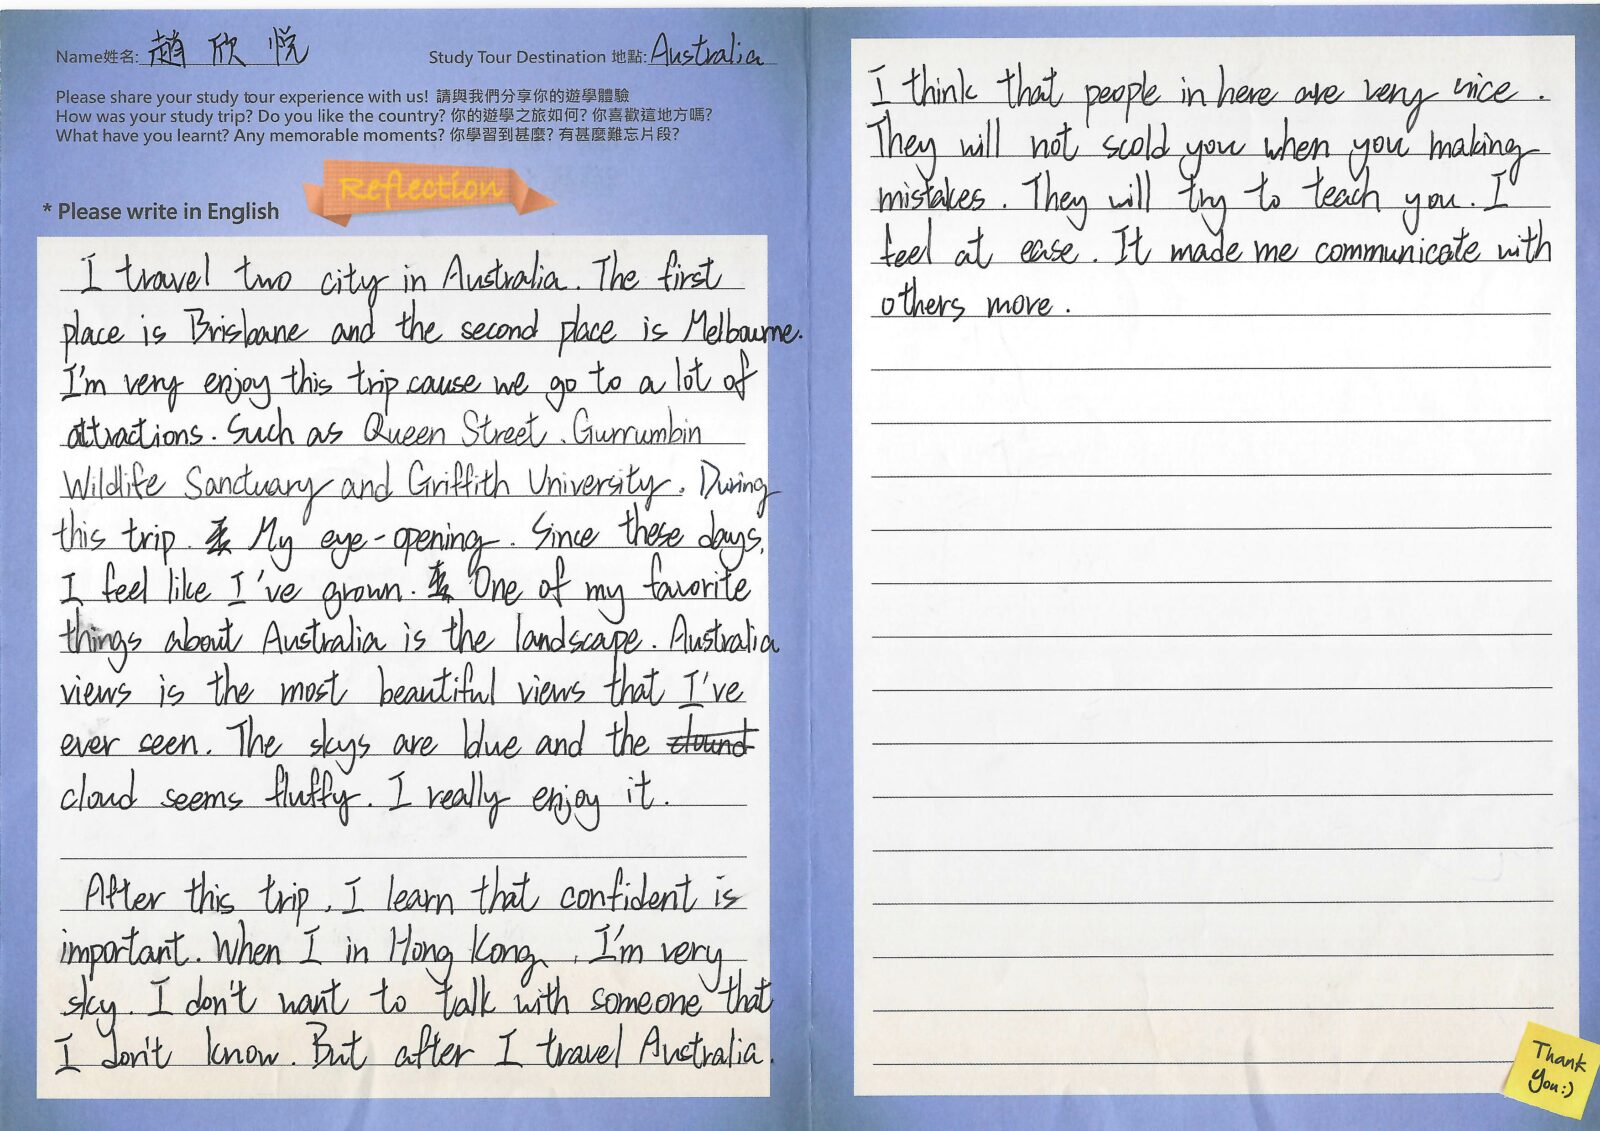 Name姓名: 趙欣悅
Study Tour Destination 地點: Australia
Please share your study tour experience with us! 請與我們分享你的遊學體驗
How was your study trip? Do you like the country? 你的遊學之旅如何? 你喜歡這地方嗎?
What have you learnt? Any memorable moments? 你學習到甚麼? 有甚麼難忘片段?
Reflection
* Please write in English
I travel two city in Australia. The first
place is Brisbane and the second place is Melbourne.
I'm very enjoy this trip cause we go to a lot of
attractions. Such as Queen Street, Gurrumbin
Wildlife Sanctuary and Griffith University. During
this trip. My eye-opening. Since these days,
I feel like I've grown. One of my favorite
things about Australia is the landscape. Australia
views is the most beautiful views that I've
ever seen. The skys are blue and the
cloud seems fluffy. I really enjoy it.
After this trip, I learn that confident is
important. When I in Hong Kong, I'm very
sky. I don't want to talk with someone that
I don't know. But after I travel Australia.
I think that people in here are very nice.
They will not scold you when you making
mistakes. They will try to teach you. I
feel at ease. It made me communicate with
others more.
Thank
you:)